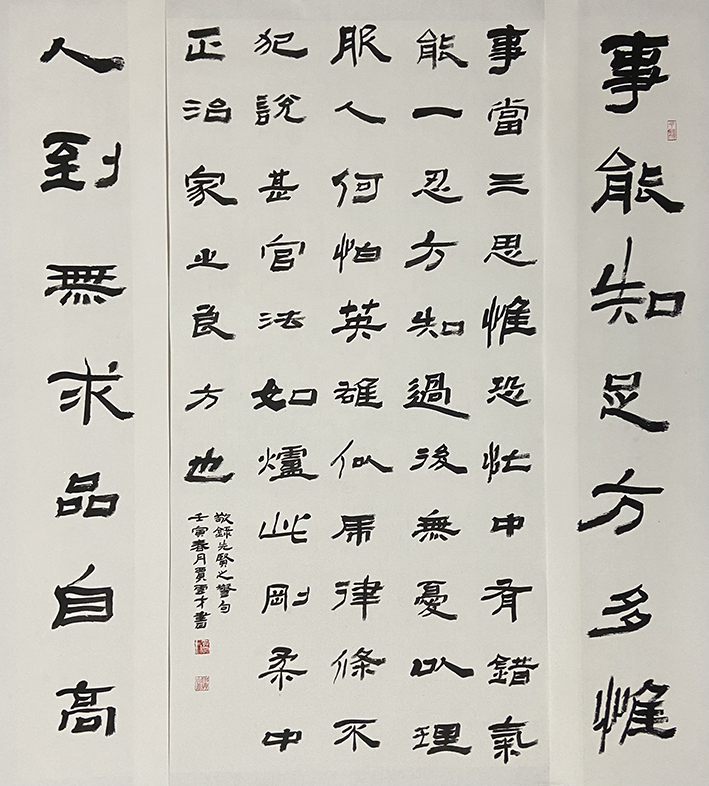 事能知足方多惟
事當三思惟恐忙中有錯氣
能一忍方知過後無憂以理
服人何怕英雄似虎律條不
犯說甚官法如爐此剛柔中
正治家之良方也
敬錄先賢之警句
壬寅春月賈雲才書
人到無求品自高